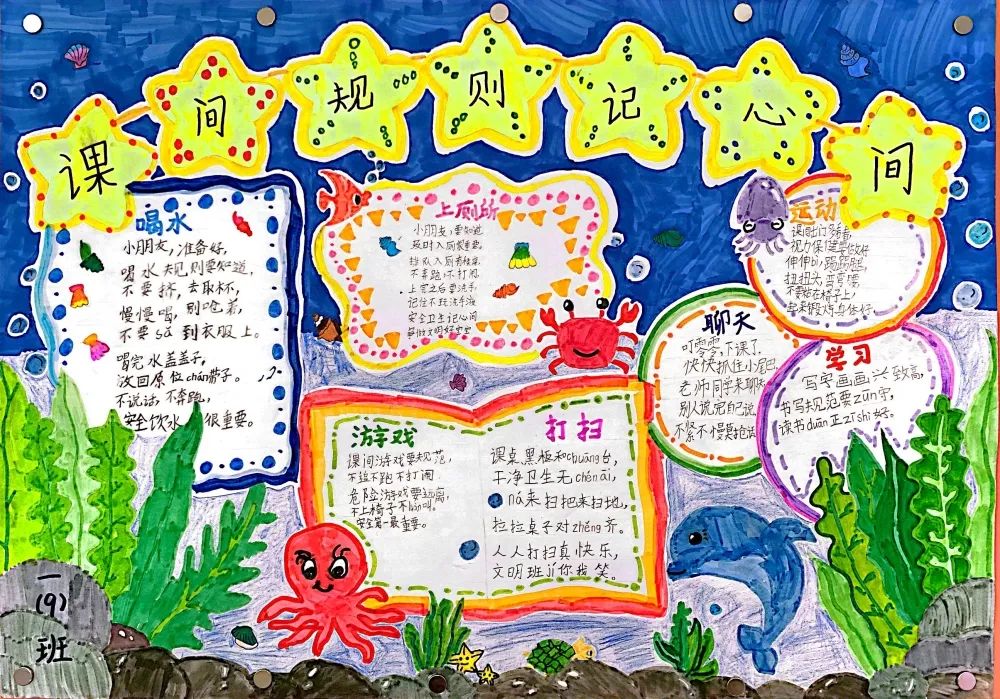 课间规则记心间
喝水
小朋友,准备好,
喝水规则要知道,
不要挤,去取杯,
慢慢喝,别呛着,
不要sǎ到衣服上。
喝完水盖盖子,
放回原位chán带子。
不说话,不奔跑,
安全饮水很重要。
上厕所
小朋友,要知道
及时入厕很重要。
排队入厕有秩序,
不奔跑,不打闹。
上完之后要洗手,
记住不玩洗手液
安全卫生记心间
运动
视力保护要做好
伸伸bì,踢踢腿,
扭扭头,弯弯腰
不要站在椅子上,
起来锻炼身体好。
聊天
叮零零,下课了,
快快抓住小尾巴,
老师同学来聊天,
别人说完自己说,
不紧不慢莫抢话
学习
写字画画兴致高,
书写规范要zūn守,
读书duān正zīshì好。
游戏
课间游戏要规范,
不追不跑不打闹
危险游戏要远离,
不上椅子不hǎn叫。
安全第一最重要。
打扫
课桌黑板和chuāng台,
干净卫生无chénāi,
ná来扫把来扫地,
拉拉桌子对zhěng齐。
人人打扫真快乐,
文明班jí你我笑。
一(9)班